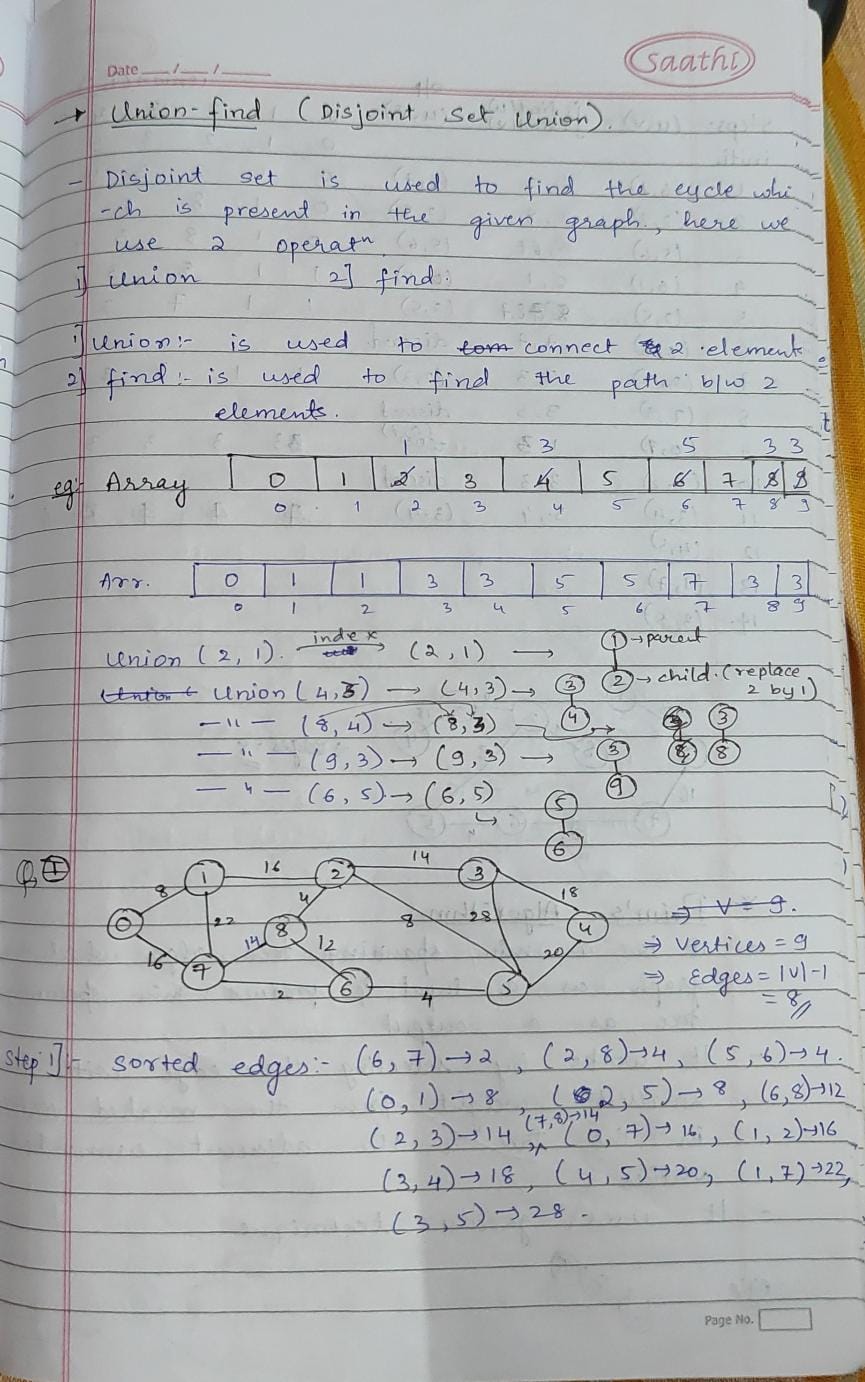 Date __/__/__
Saathi
→ Union-find (Disjoint set Union).
- Disjoint set is used to find the cycle whi
-ch is present in the given graph, here we
use 2 operatn
1] Union 2] find:
1] Union:- is used to connect 2 element
2] find:- is used to find the path b/w 2
elements.
1 3 5 3 3
eg:- Array 0 1 2 3 4 5 6 7 8 9
0 1 2 3 4 5 6 7 8 9
Arr. 0 1 1 3 3 5 5 7 3 3
0 1 2 3 4 5 6 7 8 9
Union (2, 1). index → (2, 1) → 1 → parent
2 → child. (replace
2 by 1)
Union (4, 3) → (4, 3) → 3
4
— 11 — (8, 4) → (8, 3) → 3
8
— 11 — (9, 3) → (9, 3) → 3
9
— 11 — (6, 5) → (6, 5)
↳ 5
6
Q I
1 16 2 14 3
8 4 18
0 22 8 8 28 4
16 14 12 20
7 2 6 4 5
⇒ V = 9.
⇒ Vertices = 9
⇒ Edges = |V|-1
= 8//
Step 1]:- sorted edges:- (6, 7) → 2, (2, 8) → 4, (5, 6) → 4.
(0, 1) → 8, (2, 5) → 8, (6, 8) → 12
(7, 8) → 14
(2, 3) → 14, (0, 7) → 16, (1, 2) → 16
(3, 4) → 18, (4, 5) → 20, (1, 7) → 22,
(3, 5) → 28.
Page No.